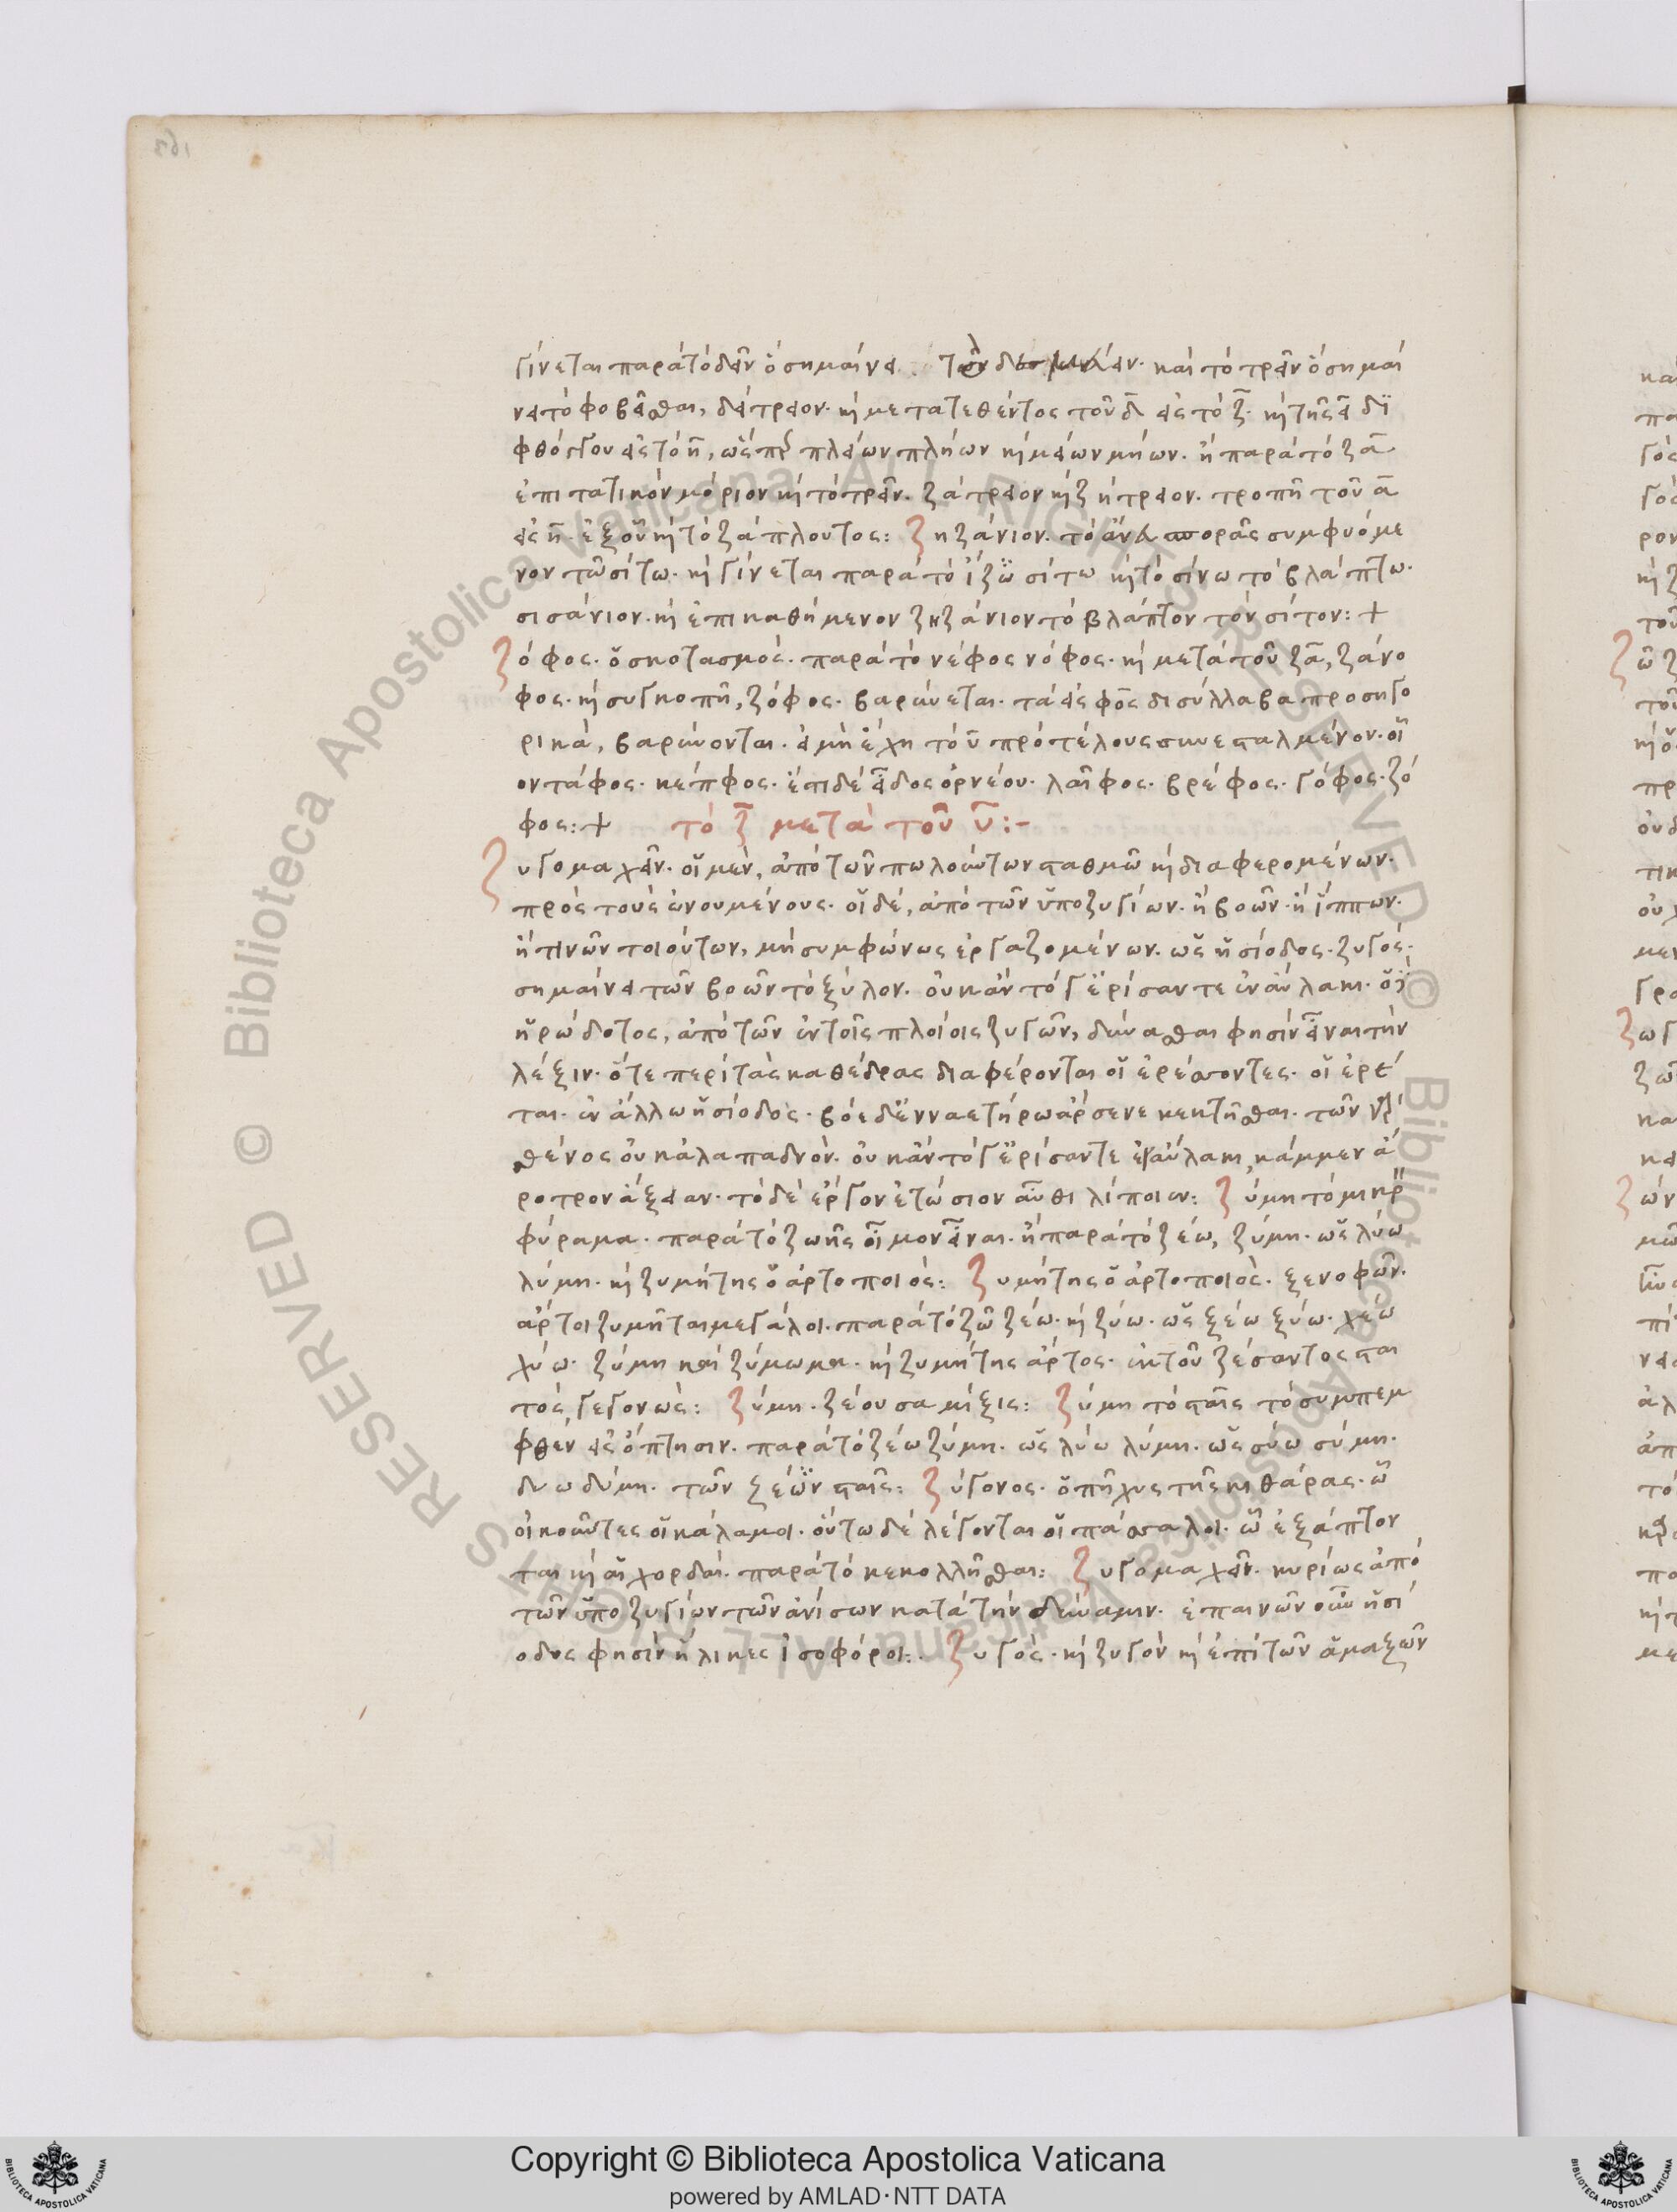 γίνεται παρὰ τὸ δεῖν ὃ σημαίνει τὸ δεσμεῖν. καὶ τὸ τρεῖν ὃ σημαί
νει τὸ φοβεῖσθαι, δάτρειον. καὶ μετατεθέντος τοῦ δ εἰς τὸ ζ. καὶ τῆς ει δι
φθόγγου εἰς τὸ η, ὥσπερ πλείων πλήων καὶ μείων μήων. ἢ παρὰ τὸ ζα
ἐπιτατικὸν μόριον καὶ τὸ τρεῖν. ζάτρειον καὶ ζήτρειον. τροπῇ τοῦ α
εἰς η. ἐξ οὗ καὶ τὸ ζάπλουτος: ζηζάνιον. τὸ ἄνευ σπορᾶς συμφυόμε
νον τῶ σίτω. καὶ γίνεται παρὰ τὸ ἵζω σίτω καὶ τὸ σίνω τὸ βλάπτω.
σισάνιον. καὶ ἐπικαθήμενον ζηζάνιον τὸ βλάπτον τὸν σῖτον: +
ζόφος. ὁ σκοτασμός. παρὰ τὸ νέφος νόφος. καὶ μετὰ τοῦ ζα, ζάνο
φος. καὶ συγκοπῇ, ζόφος. βαρύνεται. τὰ εἰς φος δισύλλαβα προσηγο
ρικὰ, βαρύνονται. εἰ μὴ ἔχη τὸ υ πρὸ τέλους συνεσταλμένον. οἷ
ον τάφος. κέπφος. ἔστι δὲ εἶδος ὀρνέου. λαῖφος. βρέφος. γόφος. ζό
φος: + τὸ ζ μετὰ τοῦ υ:-
ζυγομαχεῖν. οἱ μὲν, ἀπὸ τῶν πωλούντων σταθμῶ καὶ διαφερομένων.
πρὸς τοὺς ὠνουμένους. οἱ δὲ, ἀπὸ τῶν ὑποζυγίων. ἢ βοῶν. ἢ ἵππων.
ἤ τινῶν τοιούτων, μὴ συμφώνως ἐργαζομένων. ὡς ἡσίοδος. ζυγός.
σημαίνει τῶν βοῶν τὸ ξύλον. οὐκ ἂν τόγ' ἐρίσαντε ἐν αὔλακι. ὁ δὲ
ἡρώδοτος, ἀπὸ τῶν ἐν τοῖς πλοίοις ζυγῶν, δύνασθαι φησὶν εἶναι τὴν
λέξιν. ὅτε περὶ τὰς καθέδρας διαφέρονται οἱ ἐρέσσοντες. οἱ ἐρέ
ται. ἐν ἄλλω ἡσίοδος. βόε δ' ἐνναετήρω ἄρσενε κεκτῆσθαι. τῶν γὰρ
σθένος οὐκ ἀλαπαδνόν. οὐκ ἂν τόγ' ἐρίσαντε ἐν αὔλακι, κὰμμεν ἄ
ροτρον ἄξειαν. τὸ δὲ ἔργον ἐτώσιον αὖθι λίποιεν: ζύμη τὸ μικρὸν
φύραμα. παρὰ τὸ ζωῆς οἷμον εἶναι. ἢ παρὰ τὸ ζέω, ζύμη. ὡς λύω
λύμη. καὶ ζυμήτης ὁ ἀρτοποιός: ζυμήτης ὁ ἀρτοποιός. ξενοφῶν.
ἄρτοι ζυμῆται μεγάλοι. παρὰ τὸ ζῶ ζέω. καὶ ζύω. ὡς ξέω ξύω. χέω
χύω. ζύμη καὶ ζύμωμα. καὶ ζυμήτης ἄρτος. ἐκ τοῦ ζέσαντος σται
τός, γεγονώς: ζύμη. ζέουσα μίξις: ζύμη τὸ σταῖς τὸ συμπεμ
φθεν εἰς ὄπτησιν. παρὰ τὸ ζέω ζύμη. ὡς λύω λύμη. ὡς σύω σύμη.
δύω δύμη. τῶν ζεῶν σταῖς: ζύγονος. ὁ πῆχυς τῆς κιθάρας. ὧ
οἰκοῦντες οἱ κάλαμοι. οὕτω δὲ λέγονται οἱ πάσσαλοι. ὧ ἐξάπτον
ται καὶ αἱ χορδαί. παρὰ τὸ κεκολλῆσθαι: ζυγομαχεῖν. κυρίως ἀπὸ
τῶν ὑποζυγίων τῶν ἀνίσων κατὰ τὴν δύναμιν. ἐπαινῶν οὖν ἡσί
οδος φησὶν ἥλικες ἰσοφόροι:. ζυγός. καὶ ζυγὸν καὶ ἐπὶ τῶν ἁμαξῶν
Copyright © Biblioteca Apostolica Vaticana
powered by AMLAD·NTT DATA